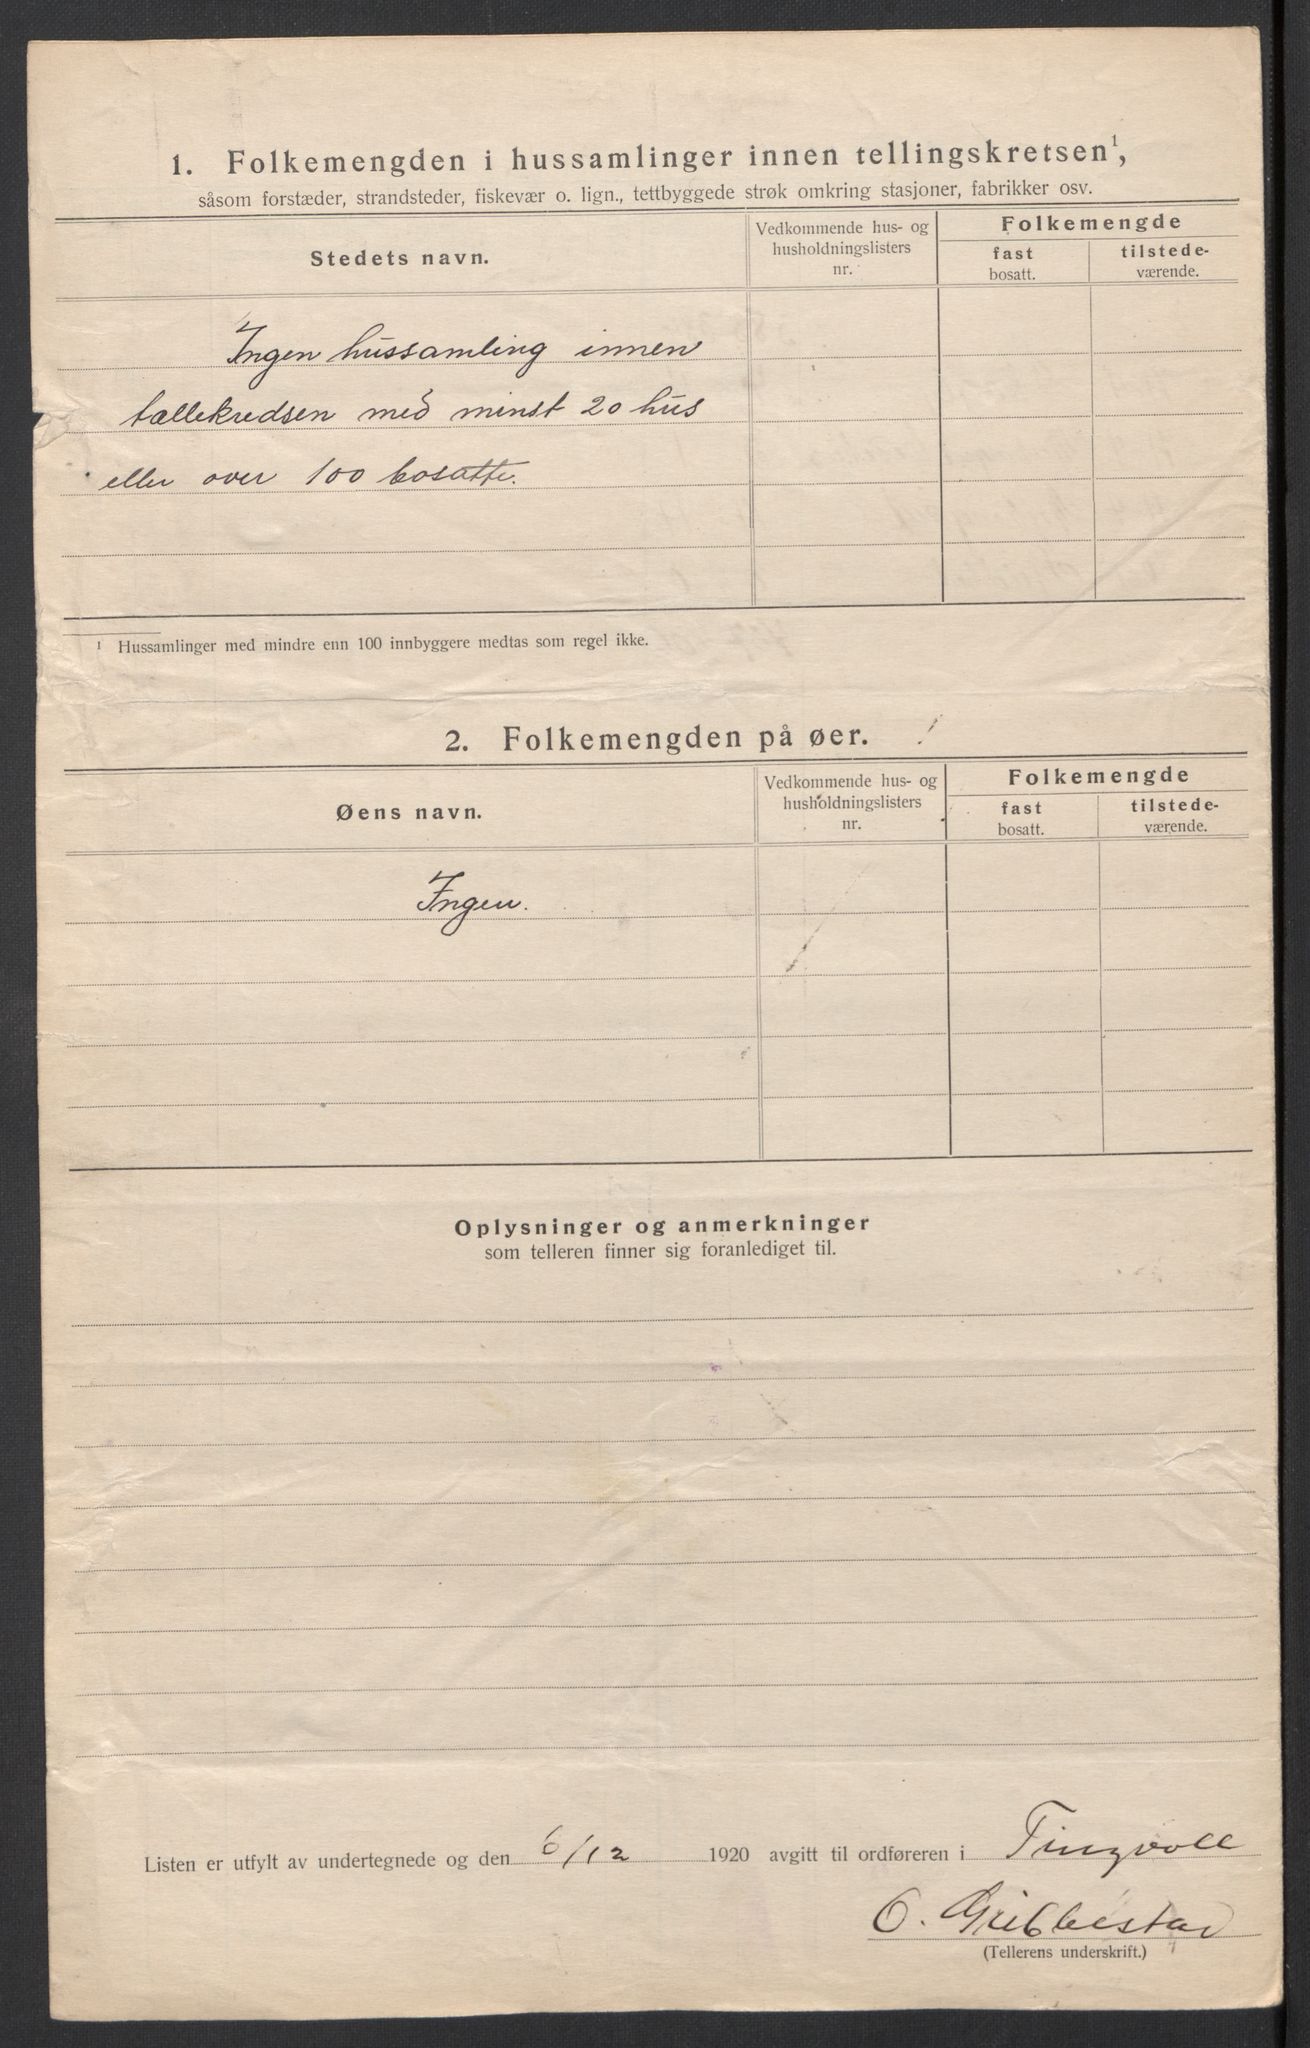 1. Folkemengden i hussamlinger innen tellingskretsen¹,
såsom forstæder, strandsteder, fiskevær o. lign., tettbyggede strøk omkring stasjoner, fabrikker osv.
Stedets navn.
Vedkommende hus- og
husholdningslisters
nr.
Folkemengde
fast
bosatt.
tilstede-
værende.
Ingen hussamling innen
tællekredsen med minst 20 hus
eller over 100 bosatte.
¹ Hussamlinger med mindre enn 100 innbyggere medtas som regel ikke.
2. Folkemengden på øer.
Øens navn.
Vedkommende hus- og
husholdningslisters
nr.
Folkemengde
fast
bosatt.
tilstede-
værende.
Ingen.
Oplysninger og anmerkninger
som telleren finner sig foranlediget til.
Listen er utfylt av undertegnede og den 6/12 1920 avgitt til ordføreren i Tingvoll
O. Gribbestad
(Tellerens underskrift.)